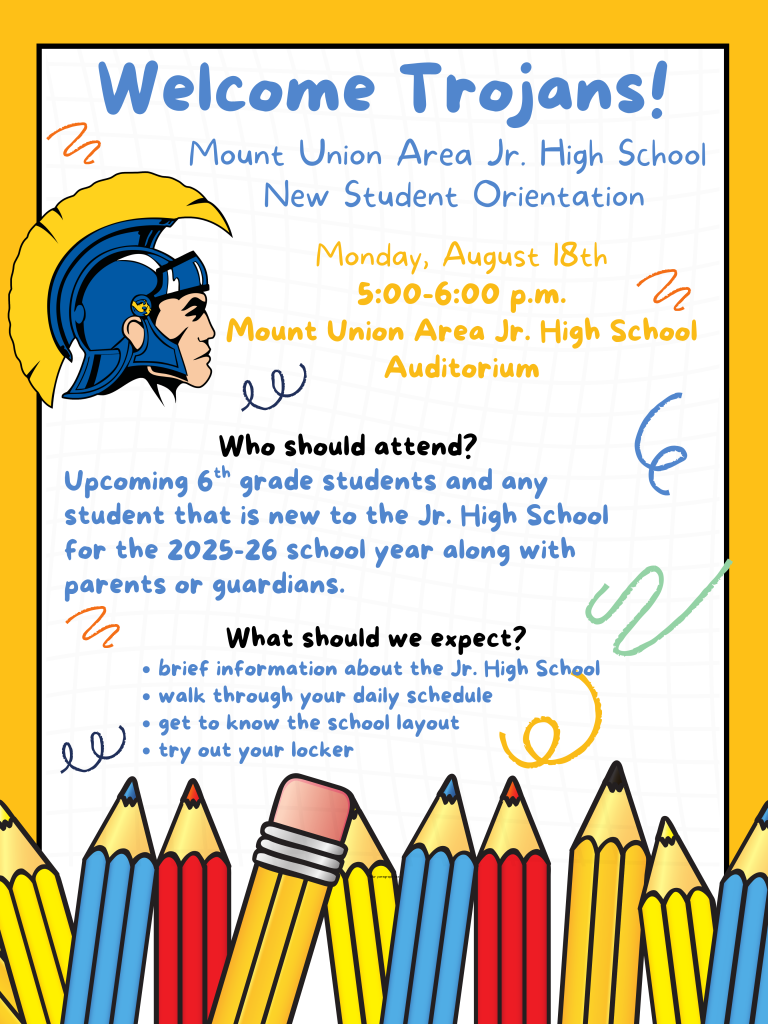 Welcome Trojans!
Mount Union Area Jr. High School
New Student Orientation
Monday, August 18th
5:00-6:00 p.m.
Mount Union Area Jr. High School
Auditorium
Who should attend?
Upcoming 6th grade students and any
student that is new to the Jr. High School
for the 2025-26 school year along with
parents or guardians.
What should we expect?
• brief information about the Jr. High School
• walk through your daily schedule
• get to know the school layout
• try out your locker